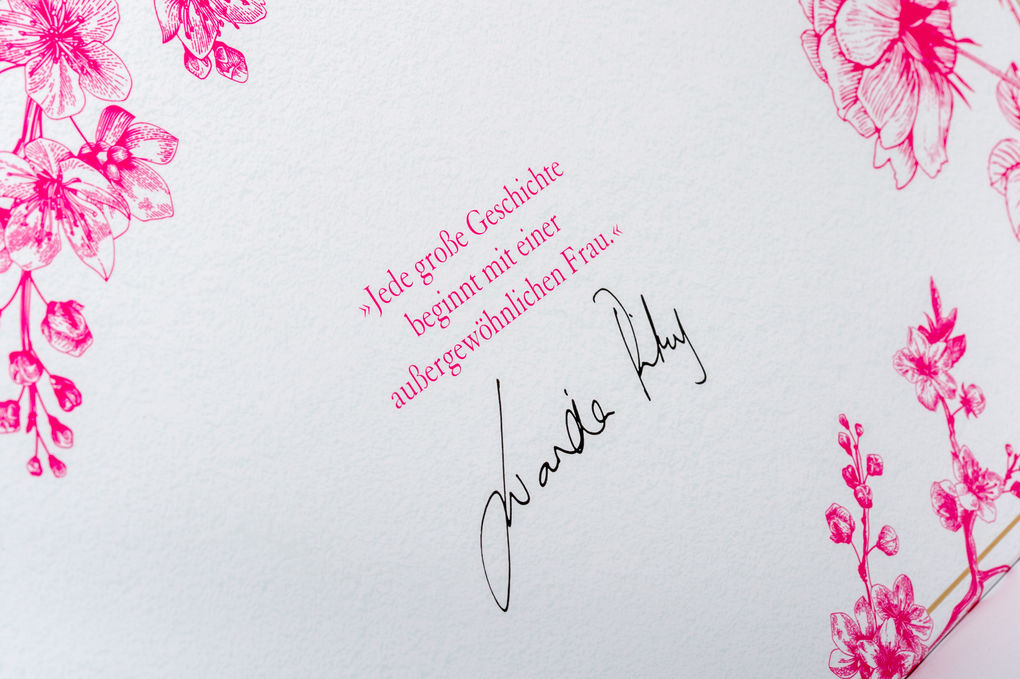 »Jede große Geschichte
beginnt mit einer
außergewöhnlichen Frau.«